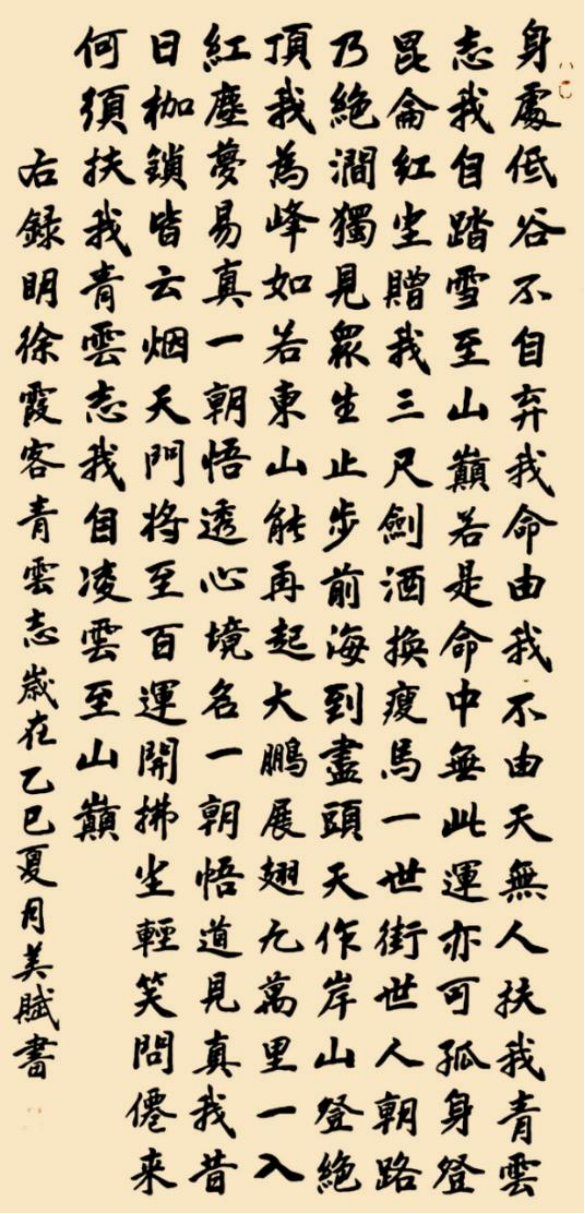 身處低谷不自弃我命由我不由天無人扶我青雲
志我自踏雪至山巔若是命中無此運亦可孤身登
昆侖紅尘贈我三尺劍酒換瘦馬一世街世人朝路
乃絕澗獨見眾生止步前海到盡頭天作岸山登絕
頂我為峰如若東山能再起大鵬展翅九萬里一入
紅塵夢易真一朝悟透心境名一朝悟道見真我昔
日枷鎖皆云烟天門將至百運開拂尘輕笑問僊來
何須扶我青雲志我自凌雲至山巔
右録明徐霞客青雲志歲在乙巳夏月美賦書